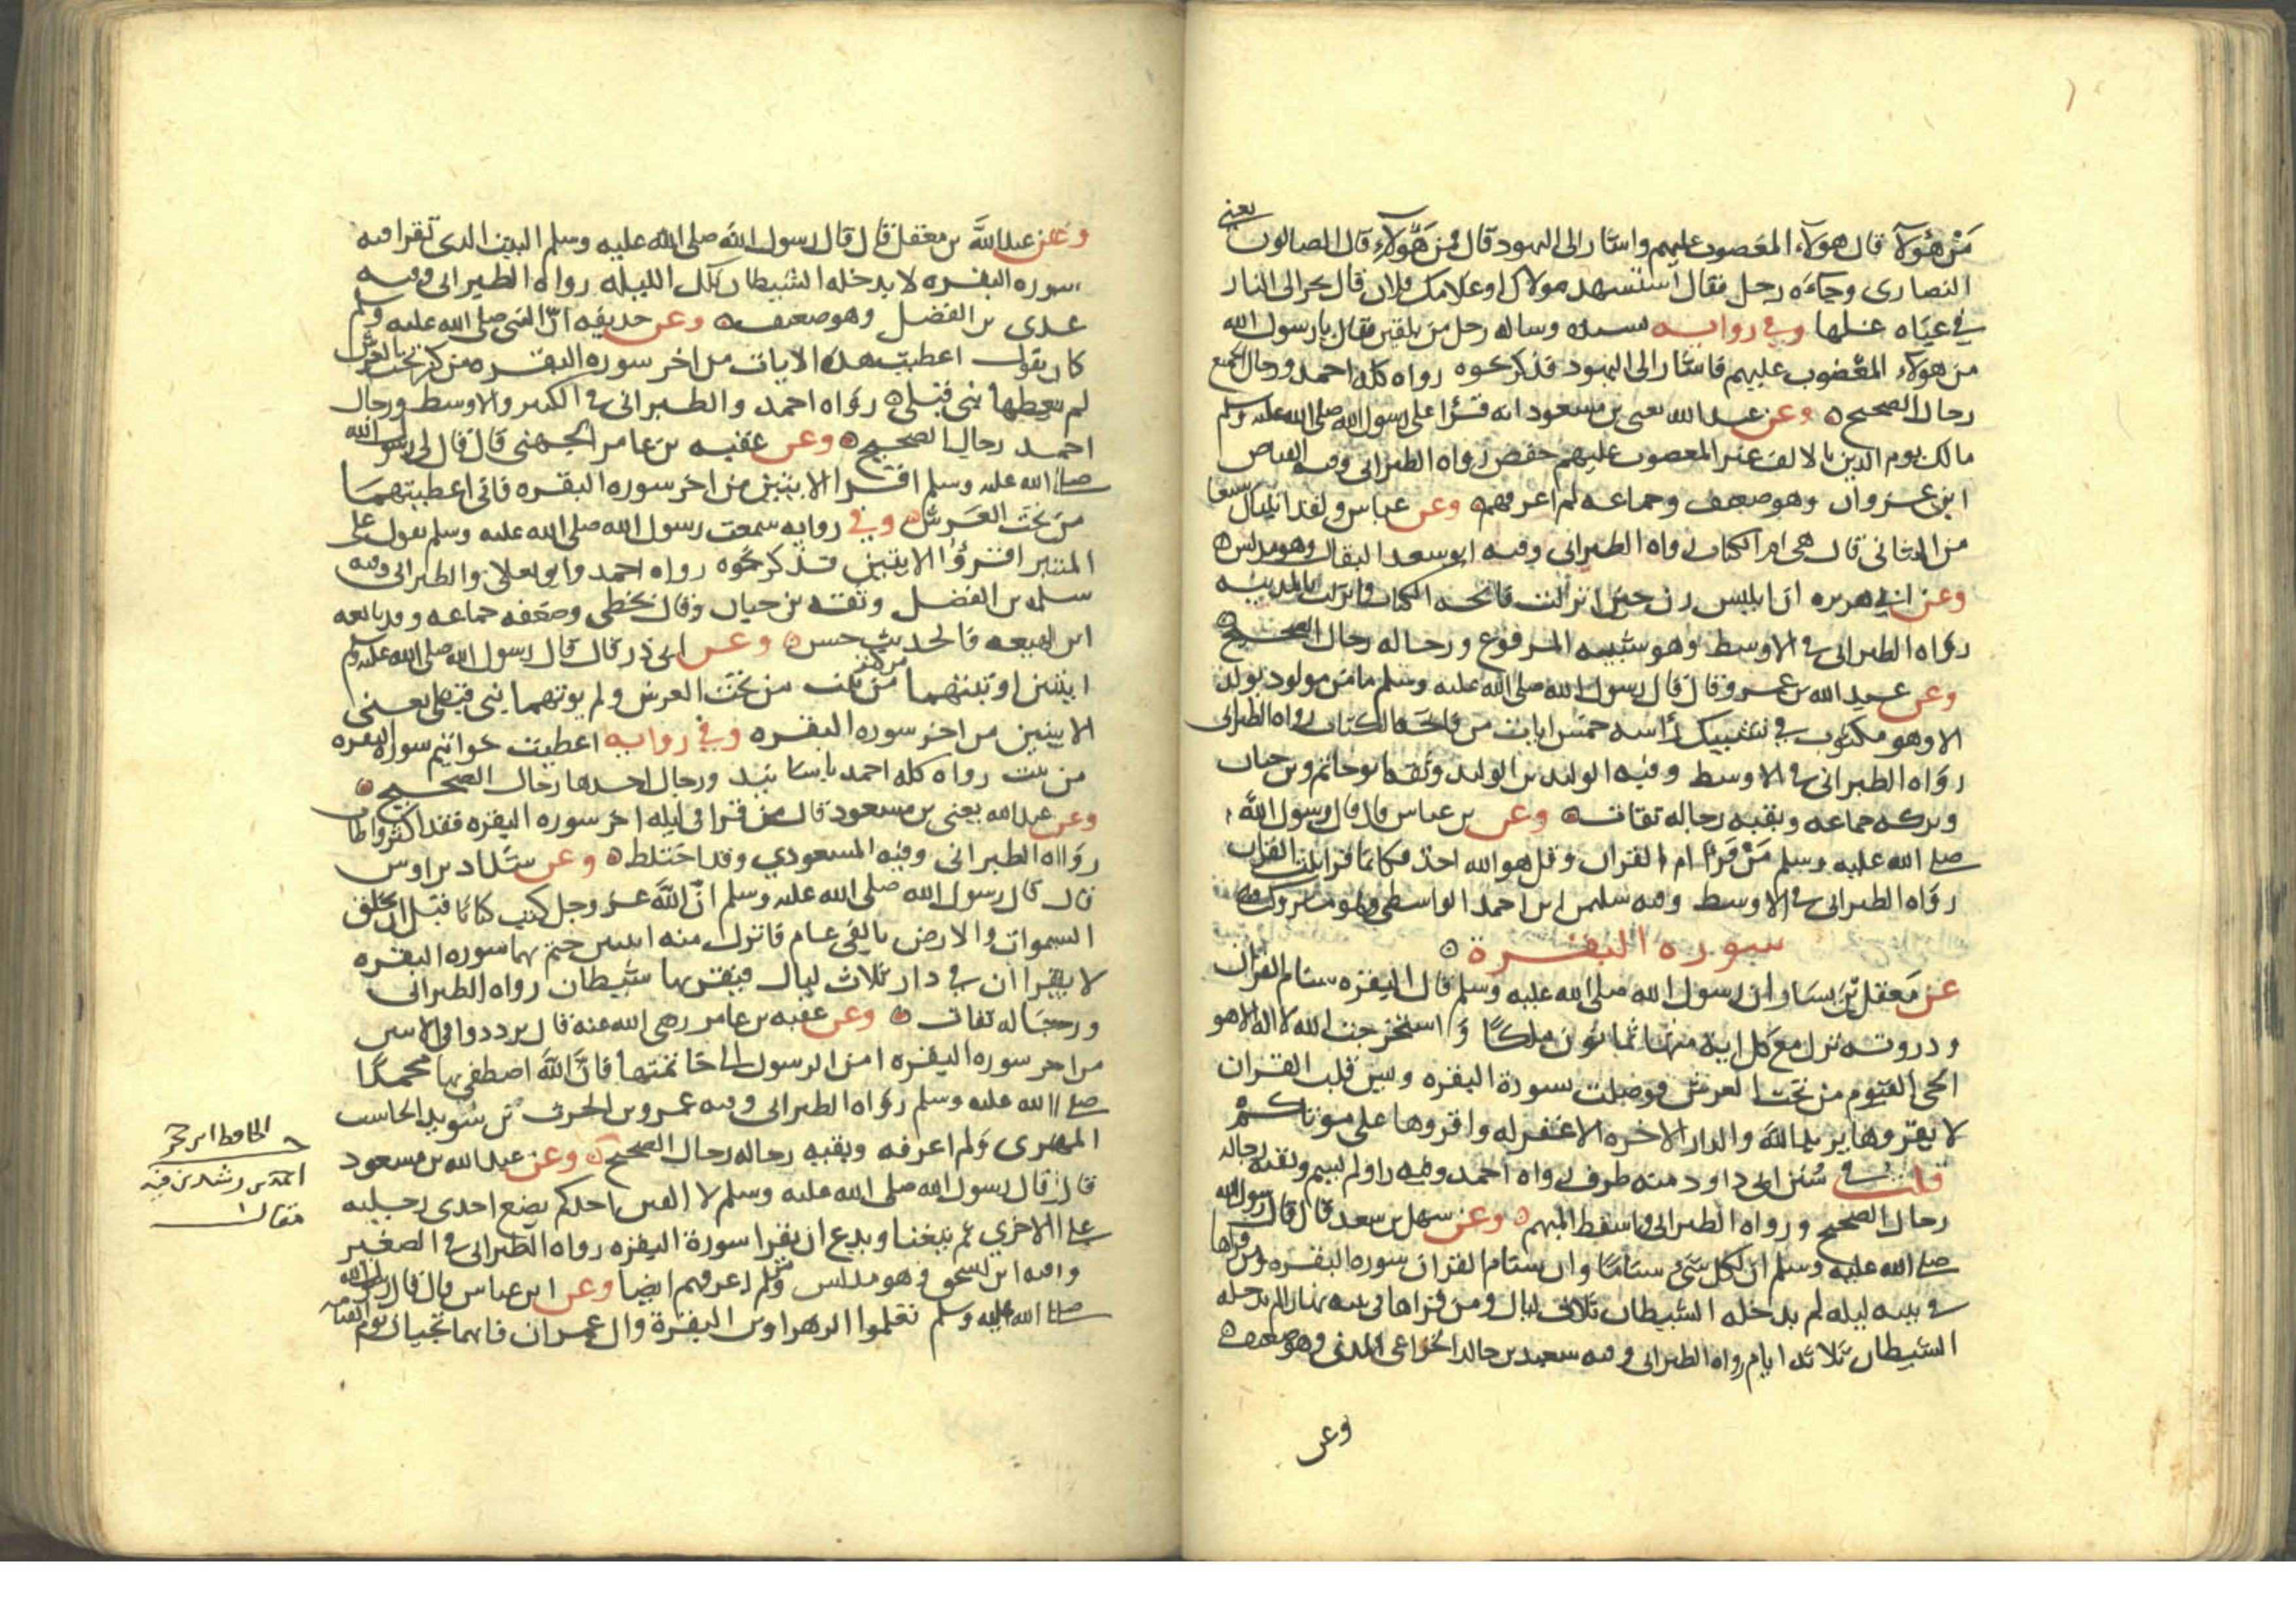 يعني
من هؤلآ قال هولاء المغضوب عليهم واشار الى اليهود قال فمن هؤلاء قال الضالون
النصارى وجاءه رجل فقال استشهد مولاك او غلامك فلان قال بل يجر الى النار
في عباه غلها وفي رواية وساله رجل من بلقين فقال يا رسول الله
من هولاء المغضوب عليهم فاشار الى اليهود فذكر نحوه رواه كله احمد ورجال الجميع
رجال الصحيح وعن عبد الله يعني بن مسعود انه قرا على رسول الله صلى الله عليه وسلم
مالك يوم الدين بالالف غير المغضوب عليهم خفض رواه الطبراني وفيه الفياض
ابن غزوان وهو ضعيف وجماعه لم اعرفهم وعن عباس ولقد اتيناك سبعا
من المثاني قال هي ام الكتاب رواه الطبراني وفيه ابو سعد البقال وهو مدلس
وعن ابي هريره ان ابليس رن حين انزلت فاتحه الكتاب وانزلت بالمدينه
رواه الطبراني في الاوسط وهو شبيه المرفوع ورجاله رجال الصحيح
وعن عبد الله بن عمرو قال قال رسول الله صلى الله عليه وسلم ما من مولود يولد
الا وهو مكتوب في تشبيك راسه خمس ايات من فاتحة الكتاب رواه الطبراني
رواه الطبراني في الاوسط وفيه الوليد بن الوليد وثقه ابو حاتم وبن حبان
وتركه جماعه وبقيه رجاله ثقات وعن بن عباس قال قال رسول الله
صلى الله عليه وسلم من قرا ام القران وقل هو الله احد فكانما قرا ثلث القران
رواه الطبراني في الاوسط وفيه سليمن ابن احمد الواسطي وهو متروك
سوره البقرة
عن معقل بن يسار ان رسول الله صلى الله عليه وسلم قال البقره سنام القران
وذروته نزل مع كل اية منها ثمانون ملكا واستخرجت الله لا اله الا هو
الحي القيوم من تحت العرش فوصلت بسورة البقره ويس قلب القران
لا يقروها يريد الله والدار الاخره الا غفر له واقروها على موتاكم
قلت في سنن ابي داود منه طرف رواه احمد وفيه راو لم يسم وبقيه رجاله
رجال الصحيح ورواه الطبراني واسقط المبهم وعن سهل بن سعد قال قال رسول الله
صلى الله عليه وسلم ان لكل شي سناما وان سنام القران سوره البقره ومن قراها
في بيته ليله لم يدخله الشيطان ثلاث ليال ومن قراها في بيته نهارا لم يدخله
الشيطان ثلاثه ايام رواه الطبراني وفيه سعيد بن خالد الخزاعي المدني وهو ضعيف
وعن
وعن عبد الله بن مغفل قال قال رسول الله صلى الله عليه وسلم البيت الذي تقرا فيه
سوره البقره لا يدخله الشيطان تلك الليله رواه الطبراني وفيه
عدي بن الفضل وهو ضعيف وعن حذيفه ان النبي صلى الله عليه وسلم
كان يقول اعطيت هذه الايات من اخر سوره البقره من كنز تحت العرش
لم يعطها نبي قبلي رواه احمد والطبراني في الكبير والاوسط ورجال
احمد رجال الصحيح وعن عقبه بن عامر الجهني قال قال لي رسول الله
صلى الله عليه وسلم اقرا الايتين من اخر سوره البقره فاني اعطيتهما
من تحت العرش وفي روايه سمعت رسول الله صلى الله عليه وسلم يقول على
المنبر اقرؤا الايتين فذكر نحوه رواه احمد وابو يعلى والطبراني وفيه
سلمه بن الفضل وثقه بن حبان وقال يخطي وضعفه جماعه وقد تابعه
ابن لهيعه فالحديث حسن وعن ابي ذر قال قال رسول الله صلى الله عليه وسلم
ايتين اوتيتهما من كنز من بيت من تحت العرش ولم يوتهما نبي قبلي يعني
الايتين من اخر سوره البقره وفي روايه اعطيت خواتيم سوره البقره
من بيت رواه كله احمد باسانيد ورجال احدها رجال الصحيح
وعن عبد الله يعني بن مسعود قال من قرا في ليله اخر سوره البقره فقد اكثر واطاب
رواه الطبراني وفيه المسعودي وقد اختلط وعن شداد بن اوس
قال قال رسول الله صلى الله عليه وسلم ان الله عز وجل كتب كتابا قبل ان يخلق
السموات والارض بالفي عام فانزل منه ايتين ختم بهما سوره البقره
لا يقراان في دار ثلاث ليال فيقربها شيطان رواه الطبراني
ورجاله ثقات وعن عقبه بن عامر رضي الله عنه قال ترددوا في الايتين
من اخر سوره البقره امن الرسول الى خاتمتها فان الله اصطفى بها محمدا
صلى الله عليه وسلم رواه الطبراني وفيه عمرو بن الحرث بن سويد الحاسب
المهري ولم اعرفه وبقيه رجاله رجال الصحيح وعن عبد الله بن مسعود
قال قال رسول الله صلى الله عليه وسلم لا الفين احدكم يضع احدى رجليه
على الاخرى ثم يتغنا ويدع ان يقرا سورة البقره رواه الطبراني في الصغير
وفيه ابن اسحق وهو مدلس ومن لم اعرفهم ايضا وعن ابن عباس قال قال رسول الله
صلى الله عليه وسلم تعلموا الزهراوين البقرة وال عمران فانهما تجيان يوم القيامه
الحافظ ابن حجر
احمد بن رشدين فيه
مقال